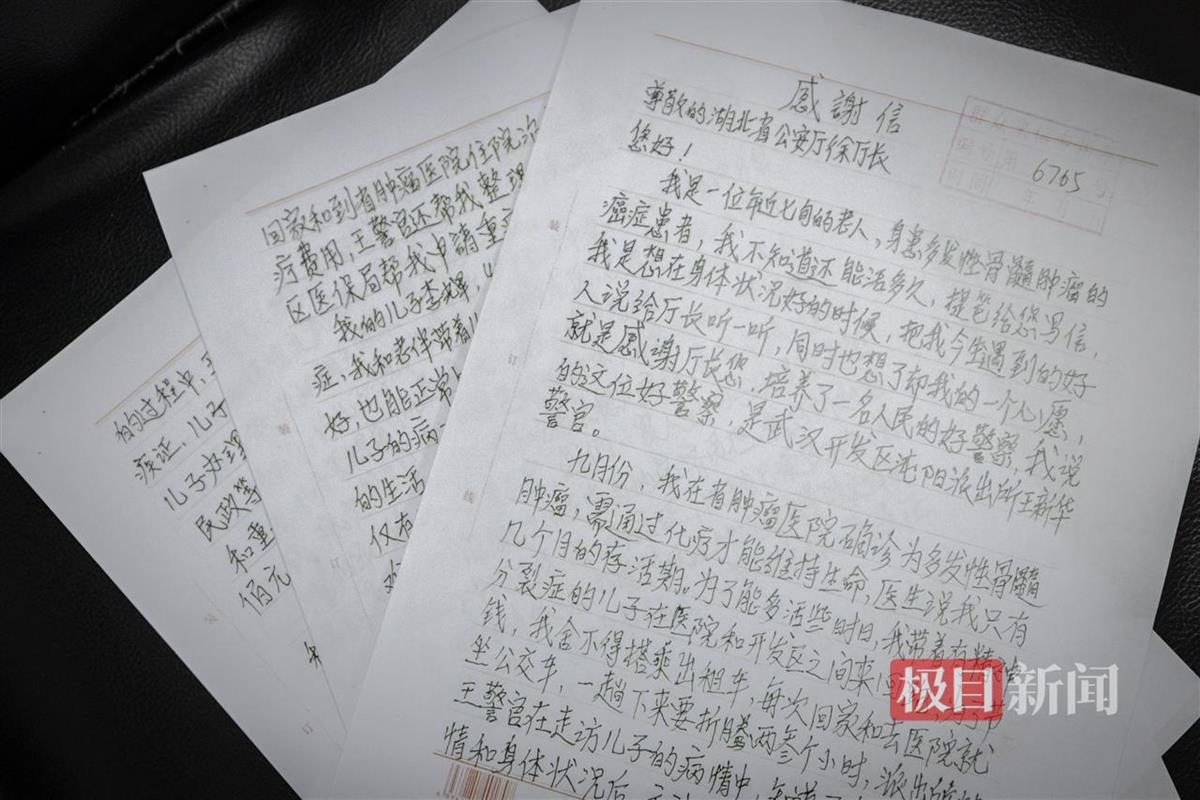 感謝信
尊敬的湖北省公安厅徐厅长
您好!
我是一位年近七旬的老人,身患多发性骨髓肿瘤的
癌症患者,我不知道还能活多久,提笔给您写信,
我是想在身体状况好的时候,把我今生遇到的好
人说给厅长听一听,同时也想了却我的一个心愿,
就是感谢厅长您,培养了一名人民的好警察,我说
的这位好警察,是武汉开发区沌阳派出所王新华
警官。
九月份,我在省肿瘤医院确诊为多发性骨髓
肿瘤,需通过化疗才能维持生命,医生说我只有
几个月的存活期。为了能多活些时日,我带着有精神
分裂症的儿子在医院和开发区之间来回
钱,我舍不得搭乘出租车,每次回家和去医院就
坐公交车,一趟下来要折腾两叁个小时,派出所的
王警官在走访儿子的病情中,知道了
情和身体状况后
6765
回家和到省肿瘤医院住院治
疗费用,王警官还帮我整理
区医保局帮我申請重
我的儿子李辉,
症,我和老伴带着儿
好,也能正常
儿子的病
的生活
仅有
的过程中,
疾证,儿子
儿子办理
民政等
和重
佰元
装
订
线
装
订
装
订
极目新闻